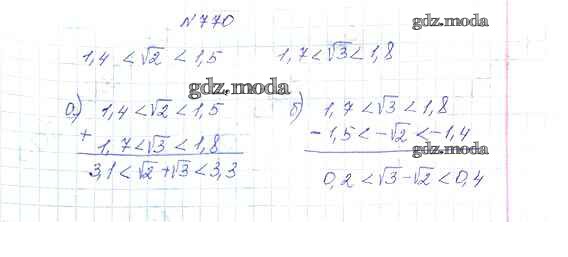 №770
gdz.moda
1,4 < √2 < 1,5 1,7 < √3 < 1,8
gdz.moda
а) 1,4 < √2 < 1,5
+ 1,7 < √3 < 1,8
3,1 < √2 + √3 < 3,3
б) 1,7 < √3 < 1,8
-1,5 < -√2 < -1,4
gdz.moda
0,2 < √3 - √2 < 0,4